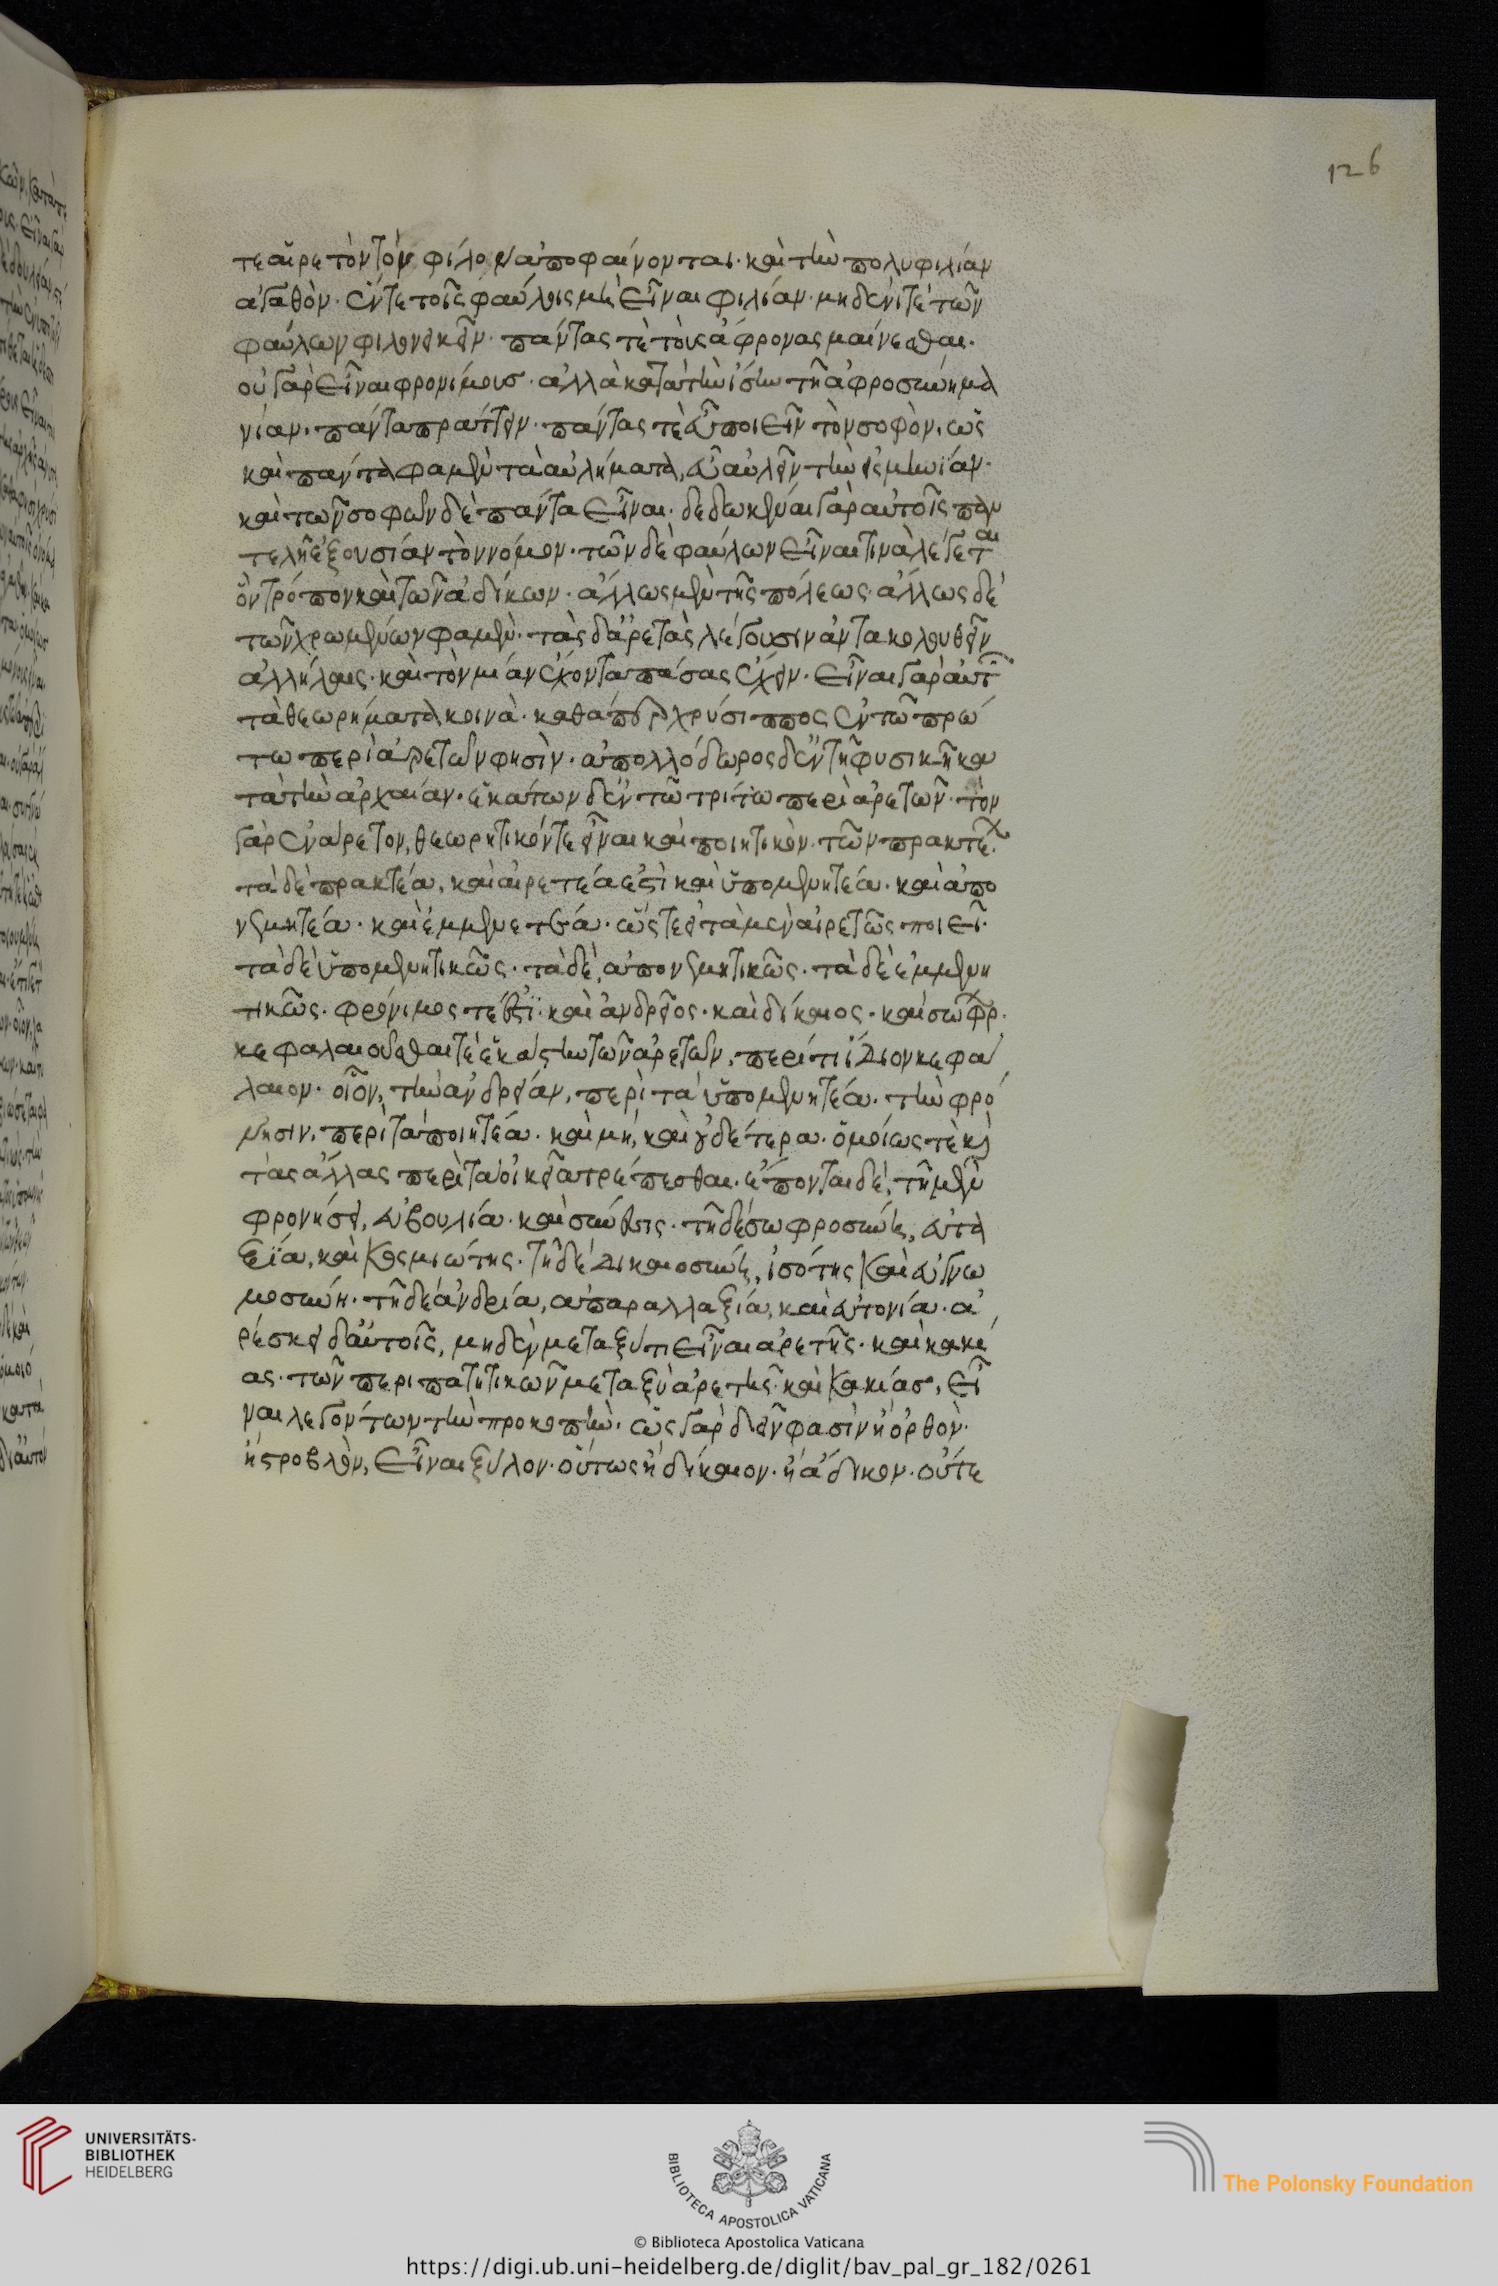 126
τε αἱρετὸν τὸν φίλον ἀποφαίνονται· καὶ τὴν πολυφιλίαν
ἀγαθὸν· ἔν τε τοῖς φαύλοις μὴ εἶναι φιλίαν· μηδενί τε τῶν
φαύλων φίλον εἶναι· πάντας τὲ τοὺς ἄφρονας μαίνεσθαι·
οὐ γὰρ εἶναι φρονίμους· ἀλλὰ κατὰ τὴν ἴσην τῇ ἀφροσύνη μα
νίαν· πάντα πράττειν· πάντας τὲ εὖ ποιεῖν τὸν σοφὸν, ὡς
καὶ πάντα φαμὲν τὰ αὐλήματα, εὖ αὐλεῖν τὴν ἰσμηνίαν·
καὶ τῶν σοφῶν δὲ πάντα εἶναι· δεδωκέναι γὰρ αὐτοῖς παν
τελῆ ἐξουσίαν τὸν νόμον· τῶν δὲ φαύλων εἶναι τινὰ λέγεται
ὃν τρόπον καὶ τῶν ἀδίκων· ἄλλως μὲν τῆς πόλεως· ἄλλως δὲ
τῶν χρωμένων φαμὲν· τὰς δ' ἀρετὰς λέγουσιν ἀντακολουθεῖν
ἀλλήλαις· καὶ τὸν μίαν ἔχοντα πάσας ἔχειν· εἶναι γὰρ αὐτ
τὰ θεωρήματα κοινὰ· καθάπερ χρύσιππος ἐν τῷ πρώ
τω περὶ ἀρετῶν φησὶν· ἀπολλόδωρος δ' ἐν τῇ φυσικῇ κα
τὰ τὴν ἀρχαίαν· ἑκάτων δ' ἐν τῷ τρίτω περὶ ἀρετῶν· τὸν
γὰρ ἐνάρετον, θεωρητικόν τε εἶναι καὶ ποιητικὸν τῶν πρακτέ
τὰ δὲ πρακτέα, καὶ αἱρετέα ἐστὶ καὶ ὑπομενητέα· καὶ ἀπο
νεμητέα· καὶ ἐμμενετέα· ὥστε εἰ τὰ μὲν αἱρετῶς ποιεῖ·
τὰ δὲ ὑπομενητικῶς· τὰ δὲ, ἀπονεμητικῶς· τὰ δὲ ἐμμενη
τικῶς· φρόνιμος τέ ἐστι· καὶ ἀνδρεῖος· καὶ δίκαιος· καὶ σώφρ·
κεφαλαιοῦσθαί τε ἑκάστην τῶν ἀρετῶν, περί τι ἴδιον κεφά
λαιον· οἷον, τὴν ἀνδρείαν, περὶ τὰ ὑπομενητέα· τὴν φρό
νησιν, περὶ τὰ ποιητέα· καὶ μὴ, καὶ οὐδέτερα· ὁμοίως τὲ καὶ
τὰς ἄλλας περὶ τὰ οἰκεῖα τρέπεσθαι· ἕπονται δὲ, τῇ μὲν
φρονήσει, εὐβουλία· καὶ σύνεσις· τῇ δὲ σωφροσύνη, εὐτα
ξία, καὶ κοσμιότης· τῇ δὲ δικαιοσύνη, ἰσότης καὶ εὐγνω
μοσύνη· τῇ δὲ ἀνδρία, ἀπαραλλαξία, καὶ εὐτονία· ἀ
ρέσκει δ' αὐτοῖς, μηδὲν μεταξύ τι εἶναι ἀρετῆς· καὶ κακί
ας· τῶν περιπατητικῶν μεταξὺ ἀρετῆς καὶ κακίας, εἶ
ναι λεγόντων τὴν προκοπὴν· ὡς γὰρ δεῖν φασὶν ἢ ὀρθὸν·
ἢ στρεβλὸν, εἶναι ξύλον· οὕτως ἢ δίκαιον· ἢ ἄδικον· οὔτε
UNIVERSITÄTS-
BIBLIOTHEK
HEIDELBERG
BIBLIOTECA APOSTOLICA VATICANA
The Polonsky Foundation
© Biblioteca Apostolica Vaticana
https://digi.ub.uni-heidelberg.de/diglit/bav_pal_gr_182/0261